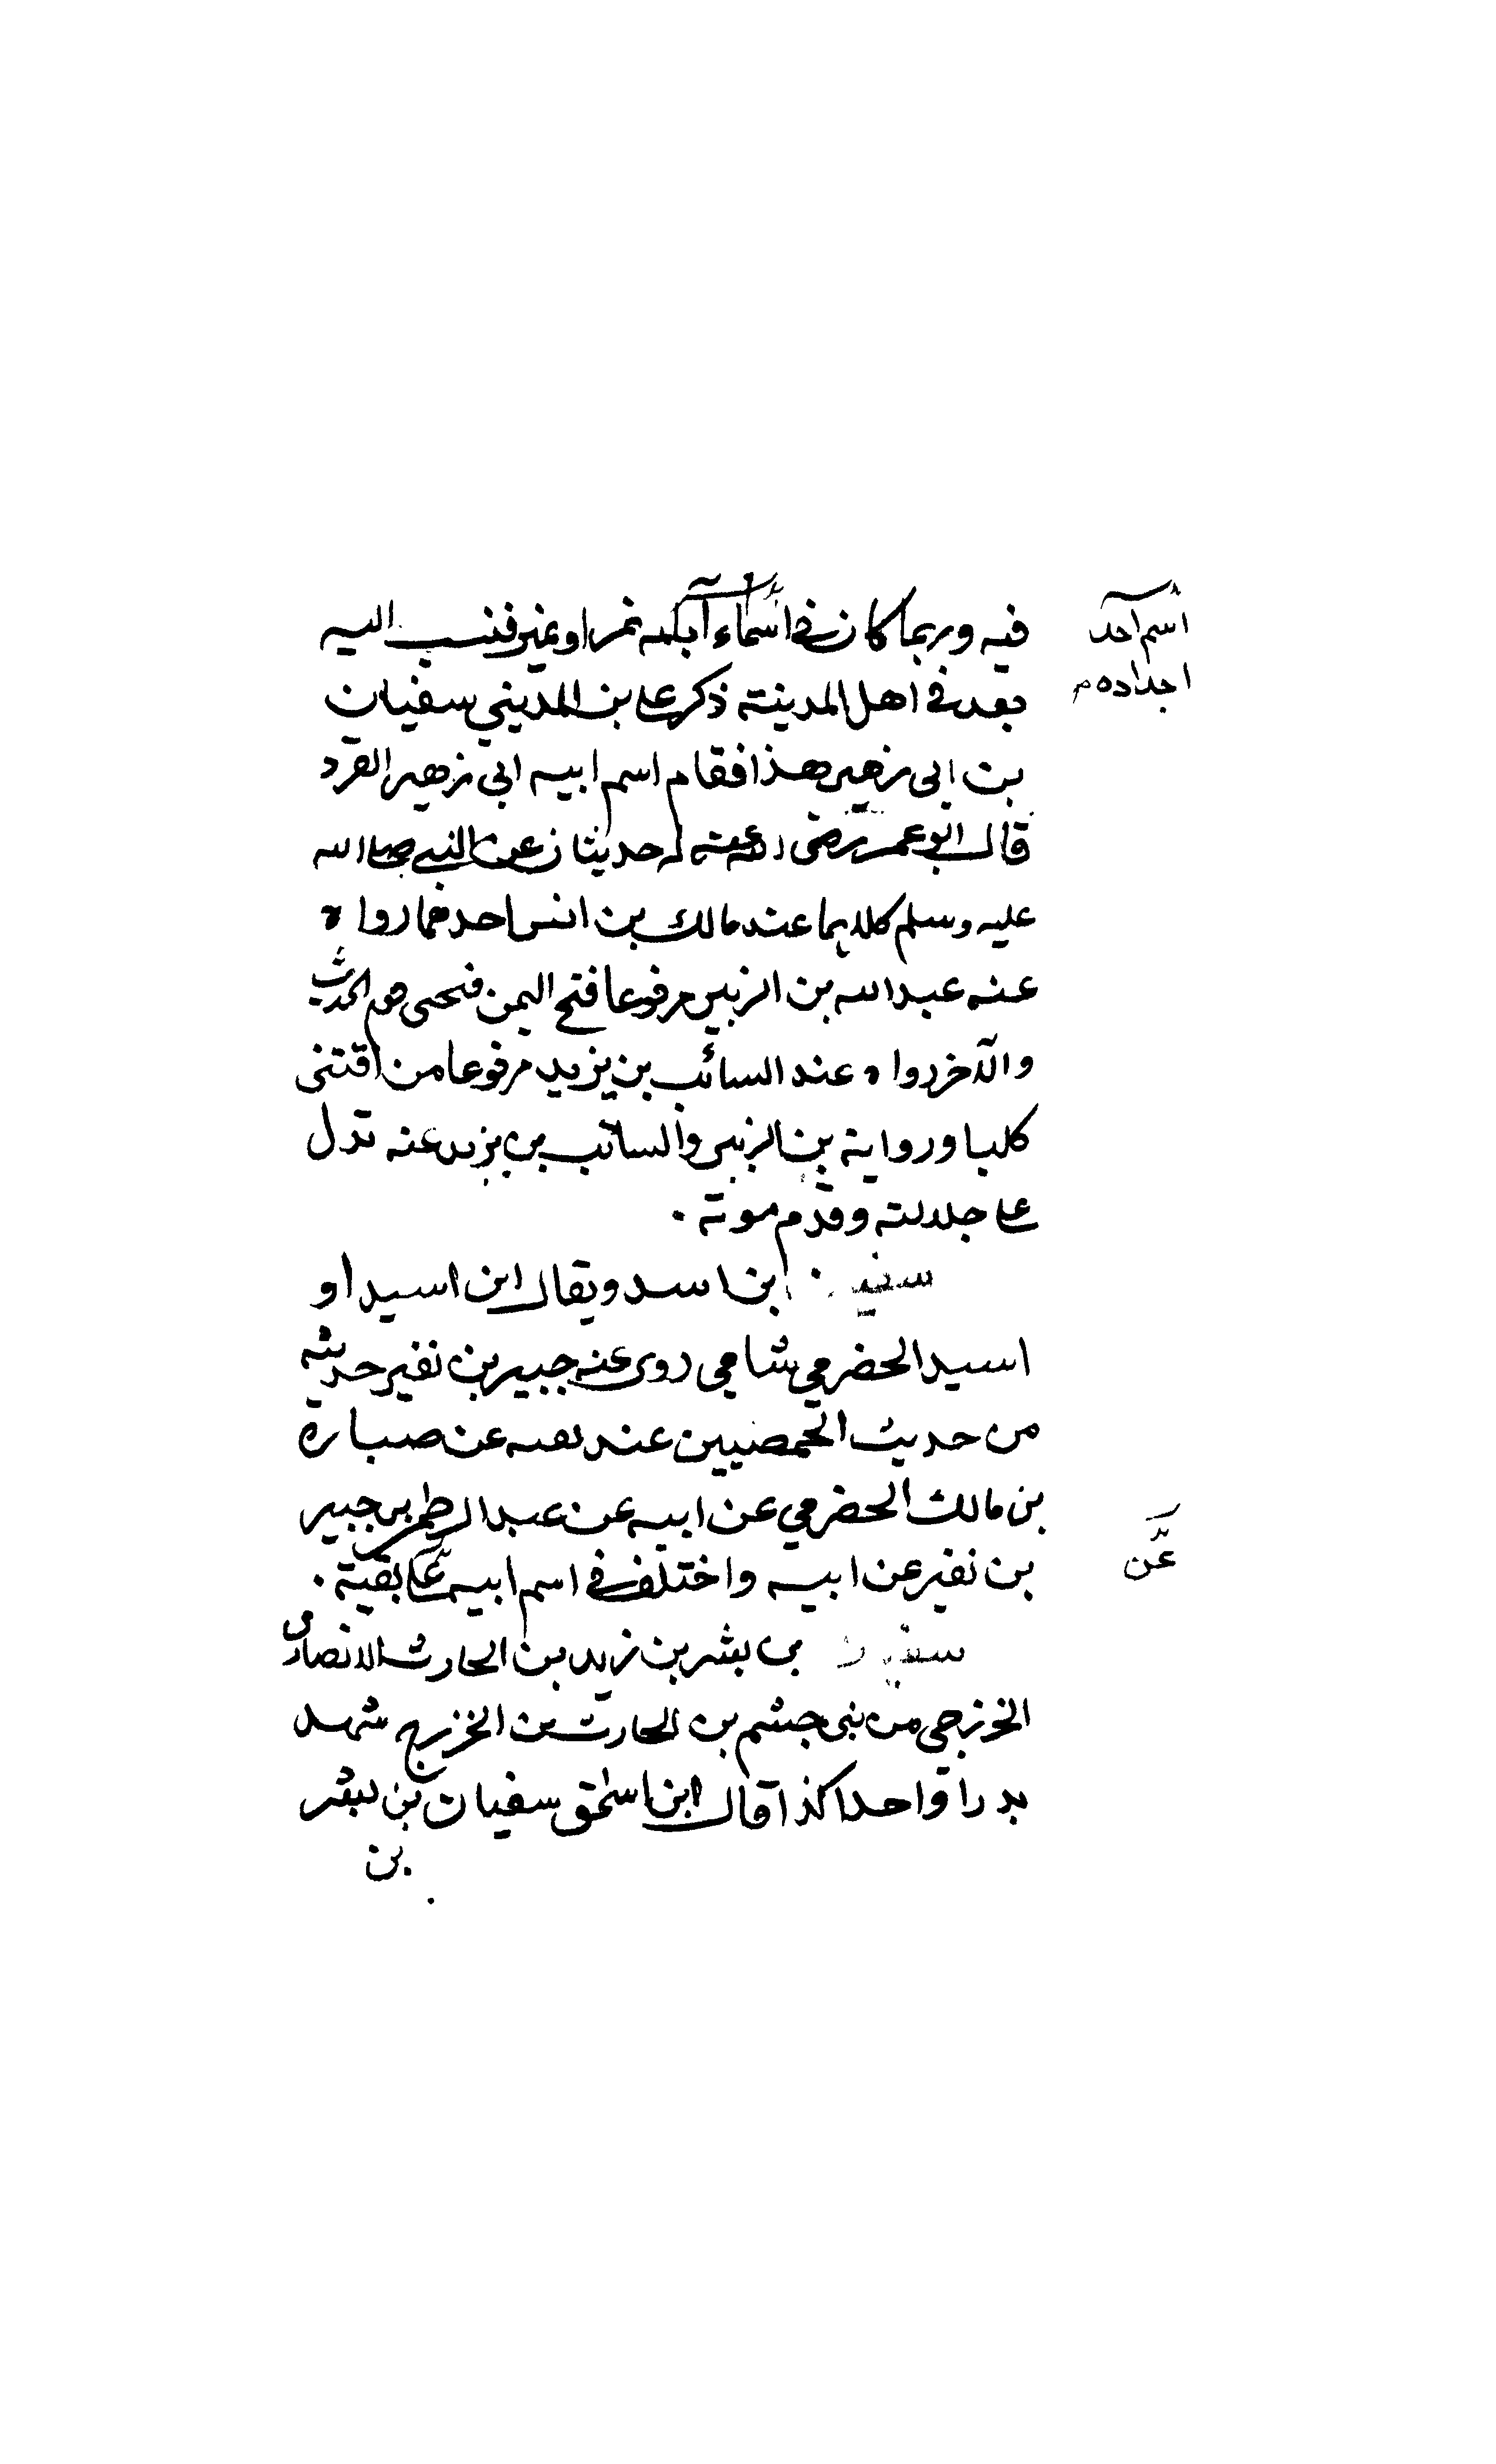 فيه وربما كان في اسماء آبائه نمر او نمير فنسب اليه
اسم احد
اجداده م
يعد في اهل المدينة ذكر على بن المديني سفيان
بن ابى زهير هذا فقام اسم ابيه ابي زهير القرد
قال ابو عمر رضى الله عنه له حديثان عن النبي صلى الله
عليه وسلم كلاهما عند مالك بن انس احدهما رواه
عنه عبد الله بن الزبير مرفوعا فتح اليمن الحديث
والآخر رواه عند السائب بن يزيد مرفوعا من اقتنى
كلبا ورواية بن الزبير والسائب بن يزيد عنه تدل
على جلالته وقدم موته .
سفين بن اسد ويقال ابن اسيد او
اسيد الحضرمي شامي روى عنه جبير بن نفير حديثه
من حديث الحمصيين عند بقيه عن ضبارة
بن مالك الحضرمي عن ابيه عن عبد الرحمن بن جبير
بن نفير عن ابيه واختلف في اسم ابيه على بقية .
عن
سفيان بن بشر بن زيد بن الحارث الانصارى
الخزرجي من بنى جشم بن الحارث بن الخزرج شهد
بدرا واحدا كذا قال ابن اسحق سفيان بن بشر
بن